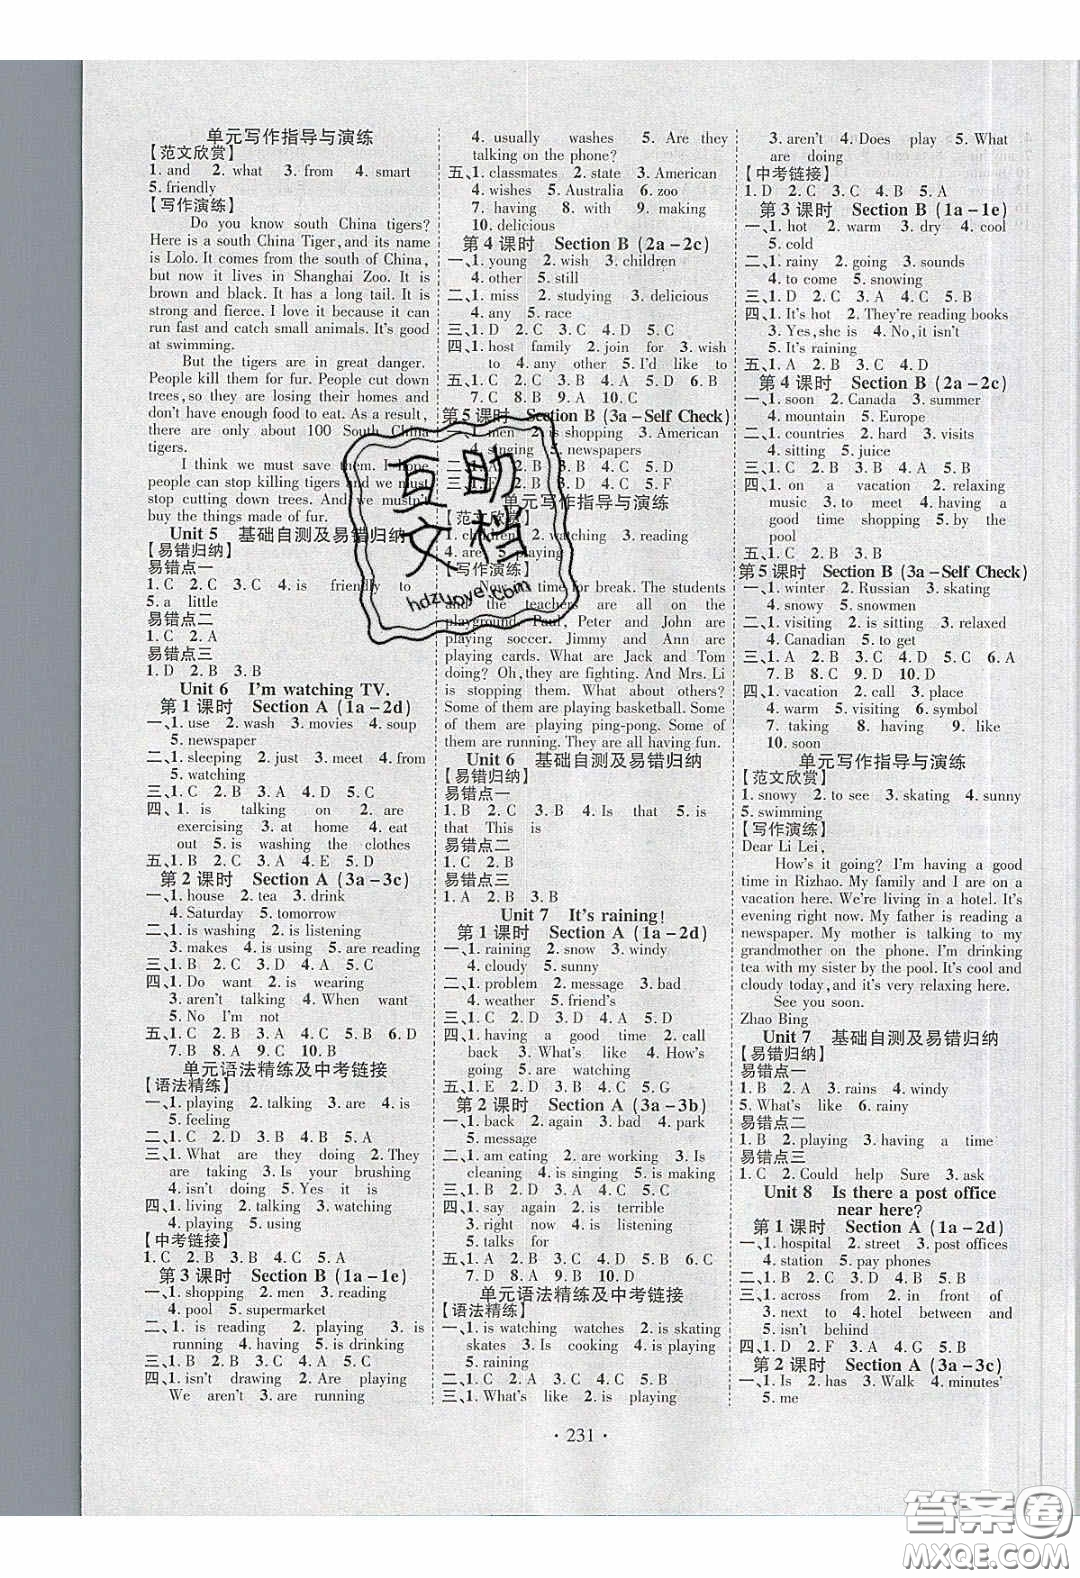 单元写作指导与演练
【范文欣赏】
1. and 2. what 3. from 4. smart
5. friendly
【写作演练】
Do you know south China tigers?
Here is a south China Tiger, and its name
is Lolo. It comes from the south of China,
but now it lives in Shanghai Zoo. It is
brown and black. It has a long tail. It is
strong and fierce. I love it because it can
run fast and catch small animals. It's good
at swimming.
But the tigers are in great danger.
People kill them for fur. People cut down
trees, so they are losing their homes and
don't have enough food to eat. As a result,
there are only about 100 South China
tigers.
I think we must save them. I hope
people can stop killing tigers and we must
stop cutting down trees. And we mustn't
buy the things made of fur.
Unit 5 基础自测及易错归纳
【易错归纳】
易错点一
1. C 2. C 3. C 4. is friendly to
5. a little
易错点二
1. C 2. A
易错点三
1. D 2. B 3. B
Unit 6 I'm watching TV.
第 1 课时 Section A (1a-2d)
一、1. use 2. wash 3. movies 4. soup
5. newspaper
二、1. sleeping 2. just 3. meet 4. from
5. watching
三、1. C 2. B 3. A 4. D 5. C
四、1. is talking on 2. are
exercising 3. at home 4. eat
out 5. is washing the clothes
五、1. B 2. C 3. A 4. E 5. D
第 2 课时 Section A (3a-3c)
一、1. house 2. tea 3. drink
4. Saturday 5. tomorrow
二、1. is washing 2. is listening
3. makes 4. is using 5. are reading
三、1. C 2. D 3. B 4. A 5. C
四、1. Do want 2. is wearing
3. aren't talking 4. When want
5. No I'm not
五、1. C 2. C 3. B 4. A 5. C 6. D
7. B 8. A 9. C 10. B
单元语法精练及中考链接
【语法精练】
一、1. playing 2. talking 3. are 4. is
5. feeling
二、1. C 2. D 3. B 4. C 5. C
三、1. What are they doing 2. They
are taking 3. Is your brushing
4. isn't doing 5. Yes it is
四、1. living 2. talking 3. watching
4. playing 5. using
【中考链接】
1. C 2. B 3. B 4. C 5. A
第 3 课时 Section B (1a-1e)
一、1. shopping 2. men 3. reading
4. pool 5. supermarket
二、1. is reading 2. playing 3. is
running 4. having 5. is drinking
三、1. B 2. C 3. A 4. B 5. C
四、1. isn't drawing 2. Are playing
We aren't 3. are running
4. usually washes 5. Are they
talking on the phone?
五、1. classmates 2. state 3. American
4. wishes 5. Australia 6. zoo
7. having 8. with 9. making
10. delicious
第 4 课时 Section B (2a-2c)
一、1. young 2. wish 3. children
4. other 5. still
二、1. miss 2. studying 3. delicious
4. any 5. race
三、1. D 2. C 3. C 4. D 5. C
四、1. host family 2. join for 3. wish
to 4. any other 5. I'd like to
五、1. C 2. C 3. B 4. A 5. D 6. B
7. C 8. B 9. A 10. C
第 5 课时 Section B (3a-Self Check)
一、1. men 2. is shopping 3. American
4. singing 5. newspapers
二、1. A 2. B 3. B 4. A 5. C
单元写作指导与演练
【范文欣赏】
1. children 2. watching 3. reading
4. are 5. playing
【写作演练】
Now is time for break. The students
and the teachers are all on the
playground. Paul, Peter and John are
playing soccer. Jimmy and Ann are
playing cards. What are Jack and Tom
doing? Oh, they are fighting. And Mrs. Li
is stopping them. What about others?
Some of them are playing basketball. Some
of them are playing ping-pong. Some of
them are running. They are all having fun.
Unit 6 基础自测及易错归纳
【易错归纳】
易错点一
1. B 2. C 3. B 4. Is that 5. is
that This is
易错点二
1. C 2. B
易错点三
1. A 2. B 3. B
Unit 7 It's raining!
第 1 课时 Section A (1a-2d)
一、1. raining 2. snow 3. windy
4. cloudy 5. sunny
二、1. problem 2. message 3. bad
4. weather 5. friend's
三、1. C 2. D 3. A 4. A 5. B
四、1. having a good time 2. call
back 3. What's like 4. How's
going 5. are watching
五、1. E 2. D 3. B 4. C 5. G
第 2 课时 Section A (3a-3b)
一、1. back 2. again 3. bad 4. park
5. message
二、1. am eating 2. are working 3. Is
cleaning 4. is singing 5. is making
三、1. B 2. D 3. C 4. A 5. D
四、1. say again 2. is terrible
3. right now 4. is listening
5. talks for
五、1. A 2. C 3. B 4. B 5. A 6. C
7. D 8. B 9. B 10. D
单元语法精练及中考链接
【语法精练】
一、1. is watching watches 2. is skating
skates 3. Is cooking 4. is playing
5. raining
二、1. C 2. B 3. D 4. C 5. A
三、1. What's like 2. is playing
3. aren't 4. Does play 5. What
are doing
【中考链接】
1. D 2. C 3. C 4. B 5. A
第 3 课时 Section B (1a-1e)
一、1. hot 2. warm 3. dry 4. cool
5. cold
二、1. rainy 2. going 3. sounds
4. to come 5. snowing
三、1. D 2. C 3. A 4. C 5. B
四、1. It's hot 2. They're reading books
3. Yes, she is 4. No, it isn't
5. It's raining
五、1. A 2. C 3. B 4. D 5. B
第 4 课时 Section B (2a-2c)
一、1. soon 2. Canada 3. summer
4. mountains 5. Europe
二、1. countries 2. hard 3. visits
4. sitting 5. juice
三、1. C 2. C 3. B 4. A 5. B
四、1. on a vacation 2. relaxing
music 3. to meet 4. having a
good time shopping 5. by the
pool
五、1. C 2. C 3. B 4. D 5. B
第 5 课时 Section B (3a-Self Check)
一、1. winter 2. Russian 3. skating
4. snowy 5. snowmen
二、1. visiting 2. is sitting 3. relaxed
4. Canadian 5. to get
三、1. A 2. B 3. C 4. D 5. C 6. A
7. B 8. C 9. C 10. D
四、1. vacation 2. call 3. place
4. warm 5. visiting 6. symbol
7. taking 8. having 9. like
10. soon
单元写作指导与演练
【范文欣赏】
1. snowy 2. to see 3. skating 4. sunny
5. swimming
【写作演练】
Dear Li Lei,
How's it going? I'm having a good
time in Rizhao. My family and I are on a
vacation here. We're living in a hotel. It's
evening right now. My father is reading a
newspaper. My mother is talking to my
grandmother on the phone. I'm drinking
tea with my sister by the pool. It's cool and
cloudy today, and it's very relaxing here.
See you soon.
Zhao Bing
Unit 7 基础自测及易错归纳
【易错归纳】
易错点一
1. B 2. A 3. rains 4. windy
5. What's like 6. rainy
易错点二
1. B 2. playing 3. having a time
易错点三
1. C 2. Could help Sure 3. ask
Unit 8 Is there a post office
near here?
第 1 课时 Section A (1a-2d)
一、1. hospital 2. street 3. post offices
4. station 5. pay phones
二、1. C 2. B 3. D 4. C 5. B
三、1. across from 2. in front of
3. next to 4. hotel between and
5. isn't behind
四、1. D 2. F 3. A 4. G 5. B
第 2 课时 Section A (3a-3c)
一、1. Is 2. has 3. Walk 4. minutes'
5. me
· 231 ·
互助
文档
hdzuoye.com
答案圈
MXQE.COM